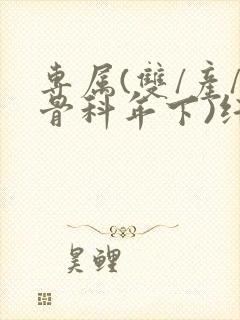 專属(雙/產/
骨科年下)
昊鲤